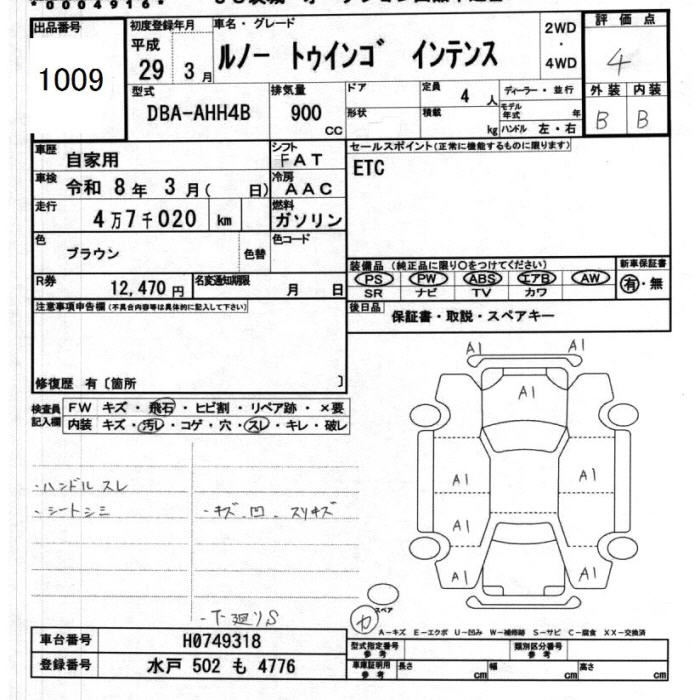 *0004916*
出品番号
1009
初度登録年月
平成
29年 3月
車名・グレード
ルノー トゥインゴ インテンス
2WD
・
4WD
評価点
4
外装 内装
B B
型式
DBA-AHH4B
排気量
900
cc
ドア
形状
定員
4 人
積載
kg
ディーラー・並行
モデル年式 年
ハンドル 左・右
車歴
自家用
シフト
FAT
車検
令和 8年 3月( 日)
冷房
AAC
走行
4万7千020 km
燃料
ガソリン
色
ブラウン
色替
色コード
R券
12,470円
名変通知期限
月 日
セールスポイント(正常に機能するものに限ります)
ETC
装備品(純正品に限り○をつけてください)
PS PW ABS エアB AW
SR ナビ TV カワ
新車保証書
有・無
後日品
保証書・取説・スペアキー
注意事項申告欄(不具合内容等は具体的に記入して下さい)
修復歴 有〔箇所 〕
検査員記入欄
FW キズ・飛石・ヒビ割・リペア跡・×要
内装 キズ・汚レ・コゲ・穴・スレ・キレ・破レ
・ハンドルスレ
・シートシミ
・キズ、凹、スリキズ
・下廻りS
A1 A1
A1
A1 A1
A1
A1 A1
スペア
A-キズ E-エクボ U-凹み W-補修跡 S-サビ C-腐食 XX-交換済
車台番号
H0749318
登録番号
水戸 502 も 4776
型式指定番号
参考
類別区分番号
参考
車庫証明用
参考
長さ cm
幅 cm
高さ cm